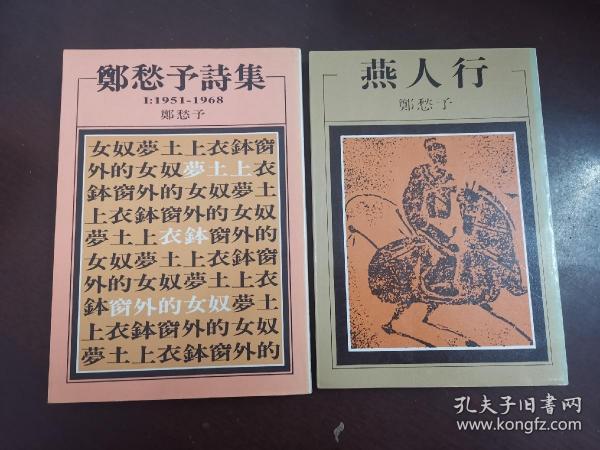 鄭愁予詩集
I:1951-1968
鄭愁予
女奴夢土上衣鉢窗
外的女奴夢土上衣
鉢窗外的女奴夢土
上衣鉢窗外的女奴
夢土上衣鉢窗外的
女奴夢土上衣鉢窗
外的女奴夢土上衣
鉢窗外的女奴夢土
上衣鉢窗外的女奴
夢土上衣鉢窗外的
燕人行
鄭愁予
孔夫子旧书网
www.kongfz.com